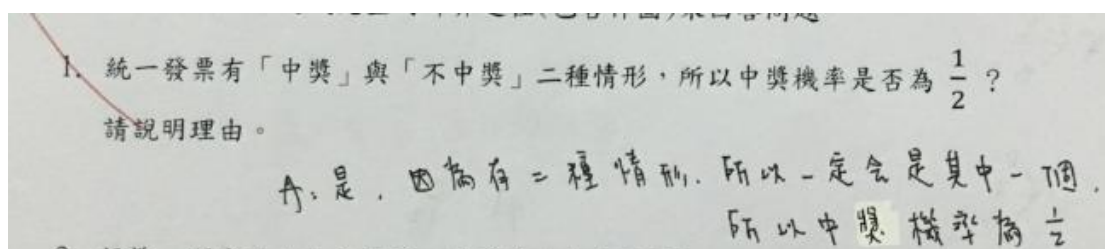 1. 統一發票有「中獎」與「不中獎」二種情形，所以中獎機率是否為 1/2 ？
請說明理由。
A：是，因為有二種情形，所以一定会是其中一個，
所以中獎機率為 1/2